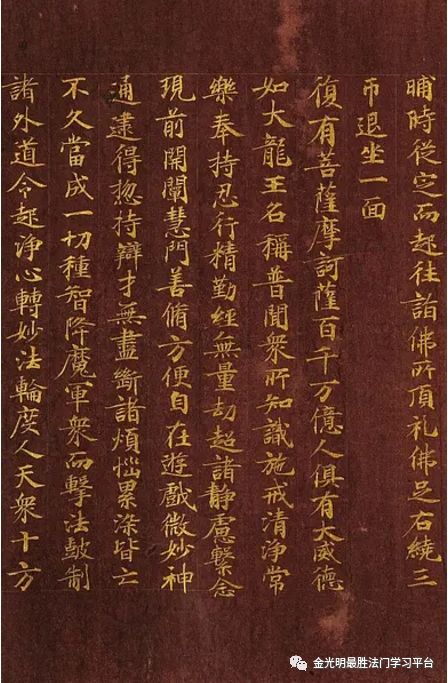 晡時從定而起往詣佛所頂礼佛足右繞三
帀退坐一面
復有菩薩摩訶薩百千万億人俱有大威德
如大龍王名稱普聞衆所知識施戒清淨常
樂奉持忍行精勤經無量劫超諸靜慮繫念
現前開闡慧門善脩方便自在遊戲微妙神
通逮得惣持辯才無盡斷諸煩惱累染皆亡
不久當成一切種智降魔軍衆而擊法鼓制
諸外道令起淨心轉妙法輪度人天衆十方
金光明最胜法门学习平台